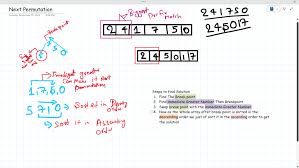 Next Permutation
Break point
Biggest prefix match
2 4 1 7 5 0
241750
245017
2 4 5 0 1 7
Immediate greater
can make it next
permutation
1, 7, 5, 0
5 7 1 0 → Sort it in
Sort it in Assending
order
Steps to Find Solution
1. Find The Break point
2. Find Immediate Greater Number Then Breakpoint
3. Swap Break point with the Immediate Greater Number
4. Now as the whole array after break point is sorted in the
descending order we just of sort it in the ascending order to get
the solution